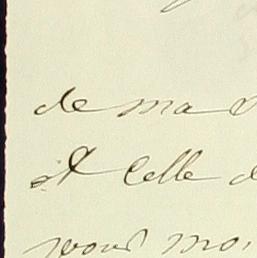 de ma
et celle
pour moi